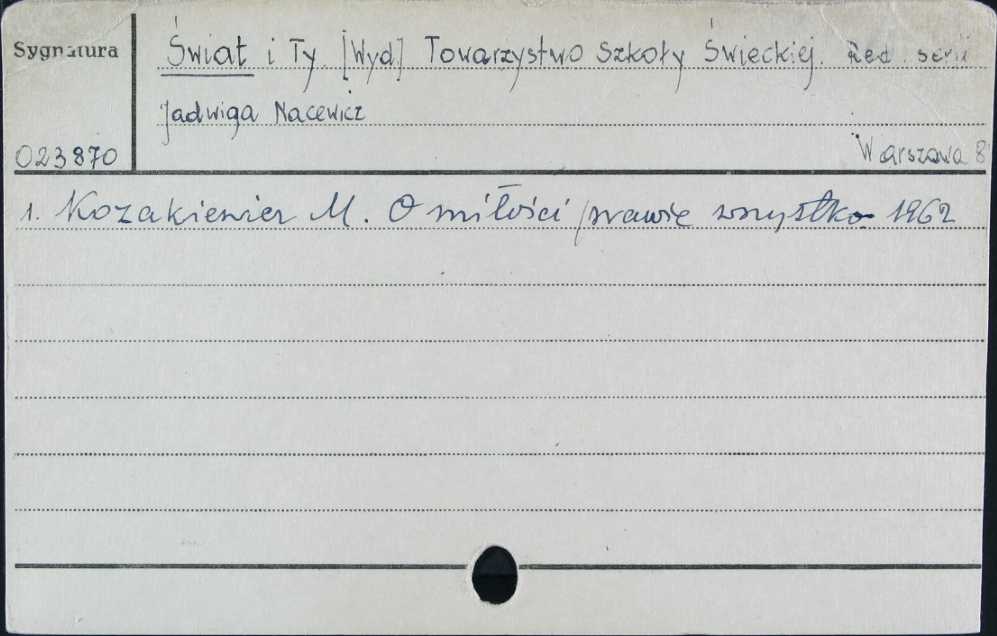 Sygnatura
Świat i Ty [Wyd] Towarzystwo Szkoły Świeckiej. Red. serii
Jadwiga Nacewicz
023870
Warszawa 8
1. Kozakiewicz M. O miłości prawie wszystko 1962